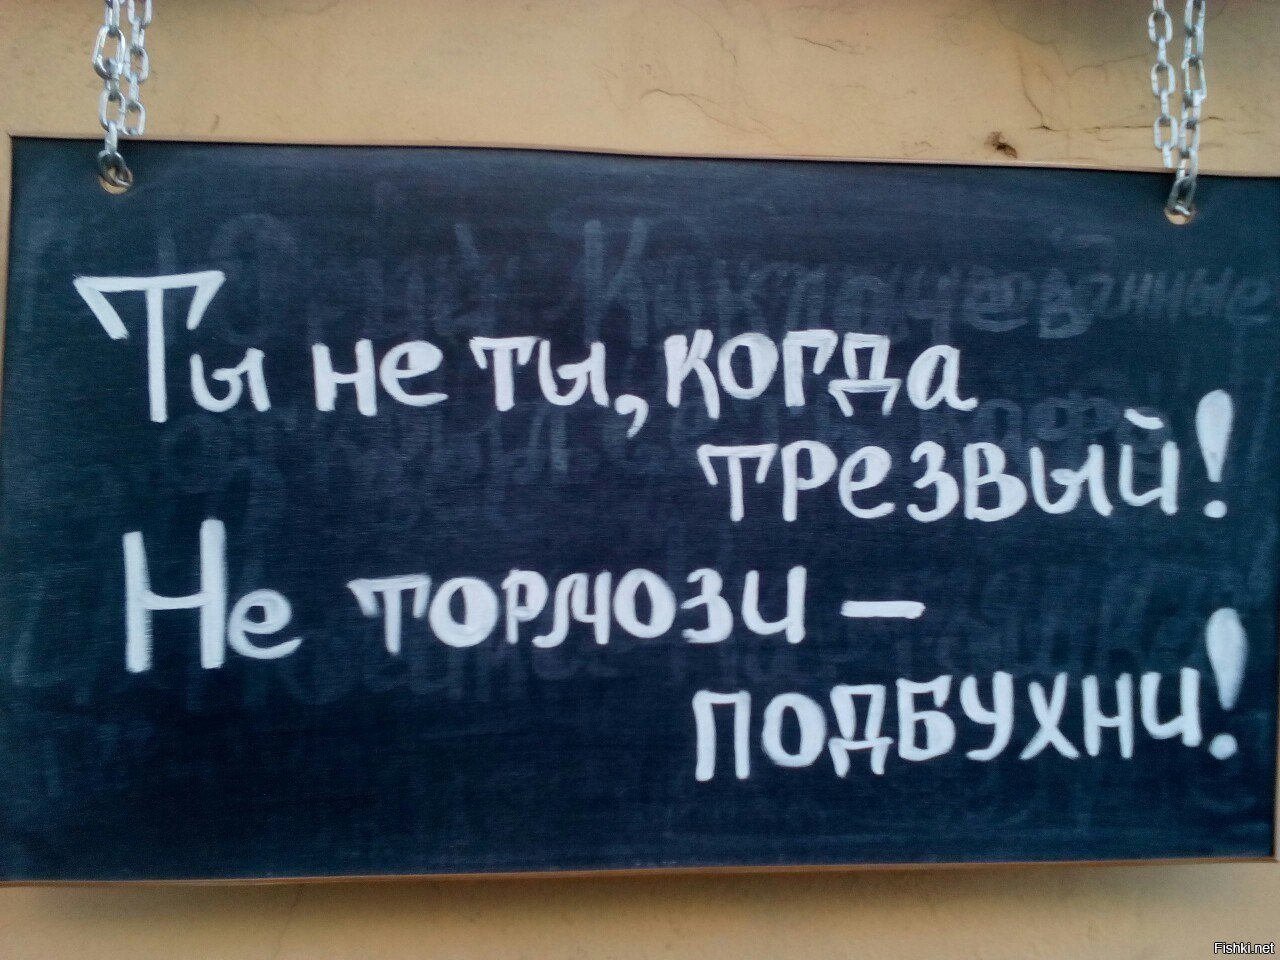 Ты не ты, когда
трезвый!
Не тормози –
подбухни!
Fishki.net